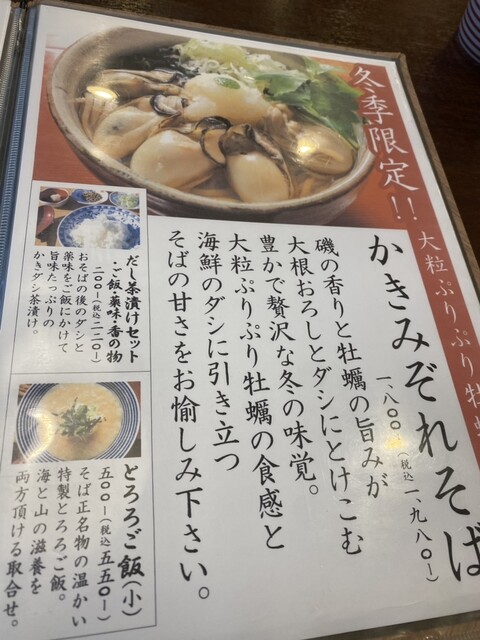 冬季限定!!
大粒ぷりぷり牡
かきみぞれそば
一、八〇〇-(税込 一、九八〇-)
磯の香りと牡蠣の旨みが
大根おろしとダシにとけこむ
豊かで贅沢な冬の味覚。
大粒ぷりぷり牡蠣の食感と
海鮮のダシに引き立つ
そばの甘さをお愉しみ下さい。
だし茶漬けセット
・ご飯・薬味・香の物
二〇〇-(税込 二二〇-)
おそばの後のダシと
薬味をご飯にかけて
旨味たっぷりの
かきダシ茶漬け。
とろろご飯(小)
五〇〇-(税込 五五〇-)
そば正名物の温かい
特製とろろご飯。
海と山の滋養を
両方頂ける取合せ。